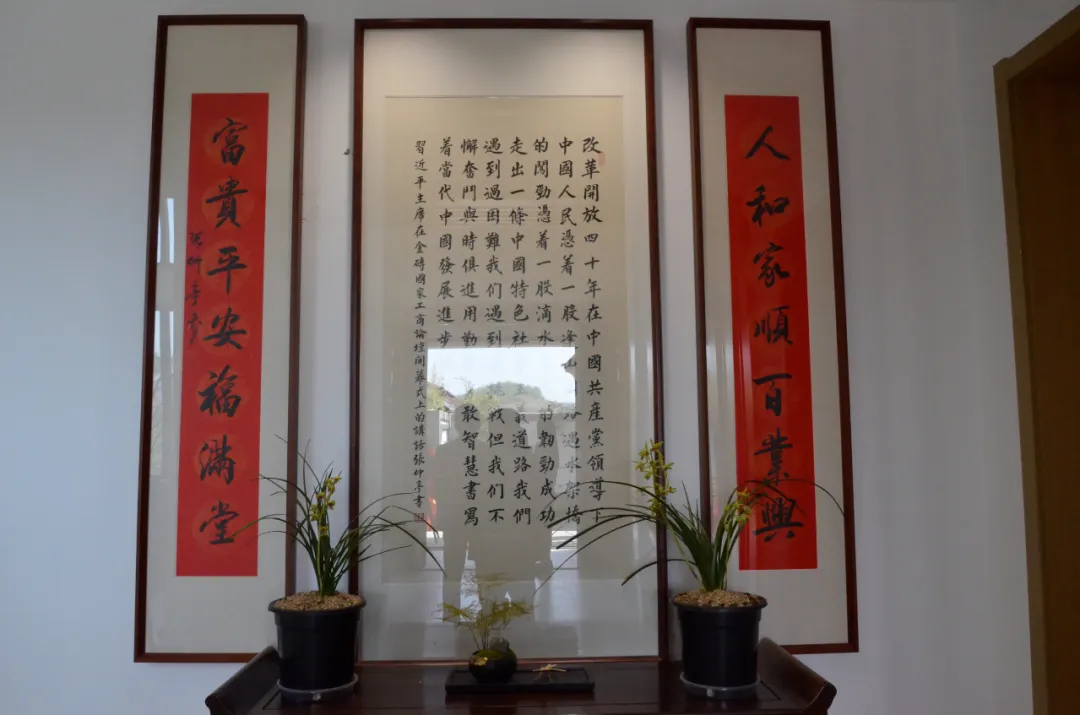 人和家順百業興
改革開放四十年在中國共産黨領導下
中國人民憑着一股逢山路遇水架橋
的闖勁憑着一股滴水的韌勁成功
走出一條中國特色社義道路我們
遇到過困難我们遇到戰但我们不
懈奮鬥與時俱進用勤敢智慧書寫
着當代中國發展進步
習近平主席在金磚國家工商論壇開幕式上的講話張仲亭書
富貴平安福滿堂
張仲亭書